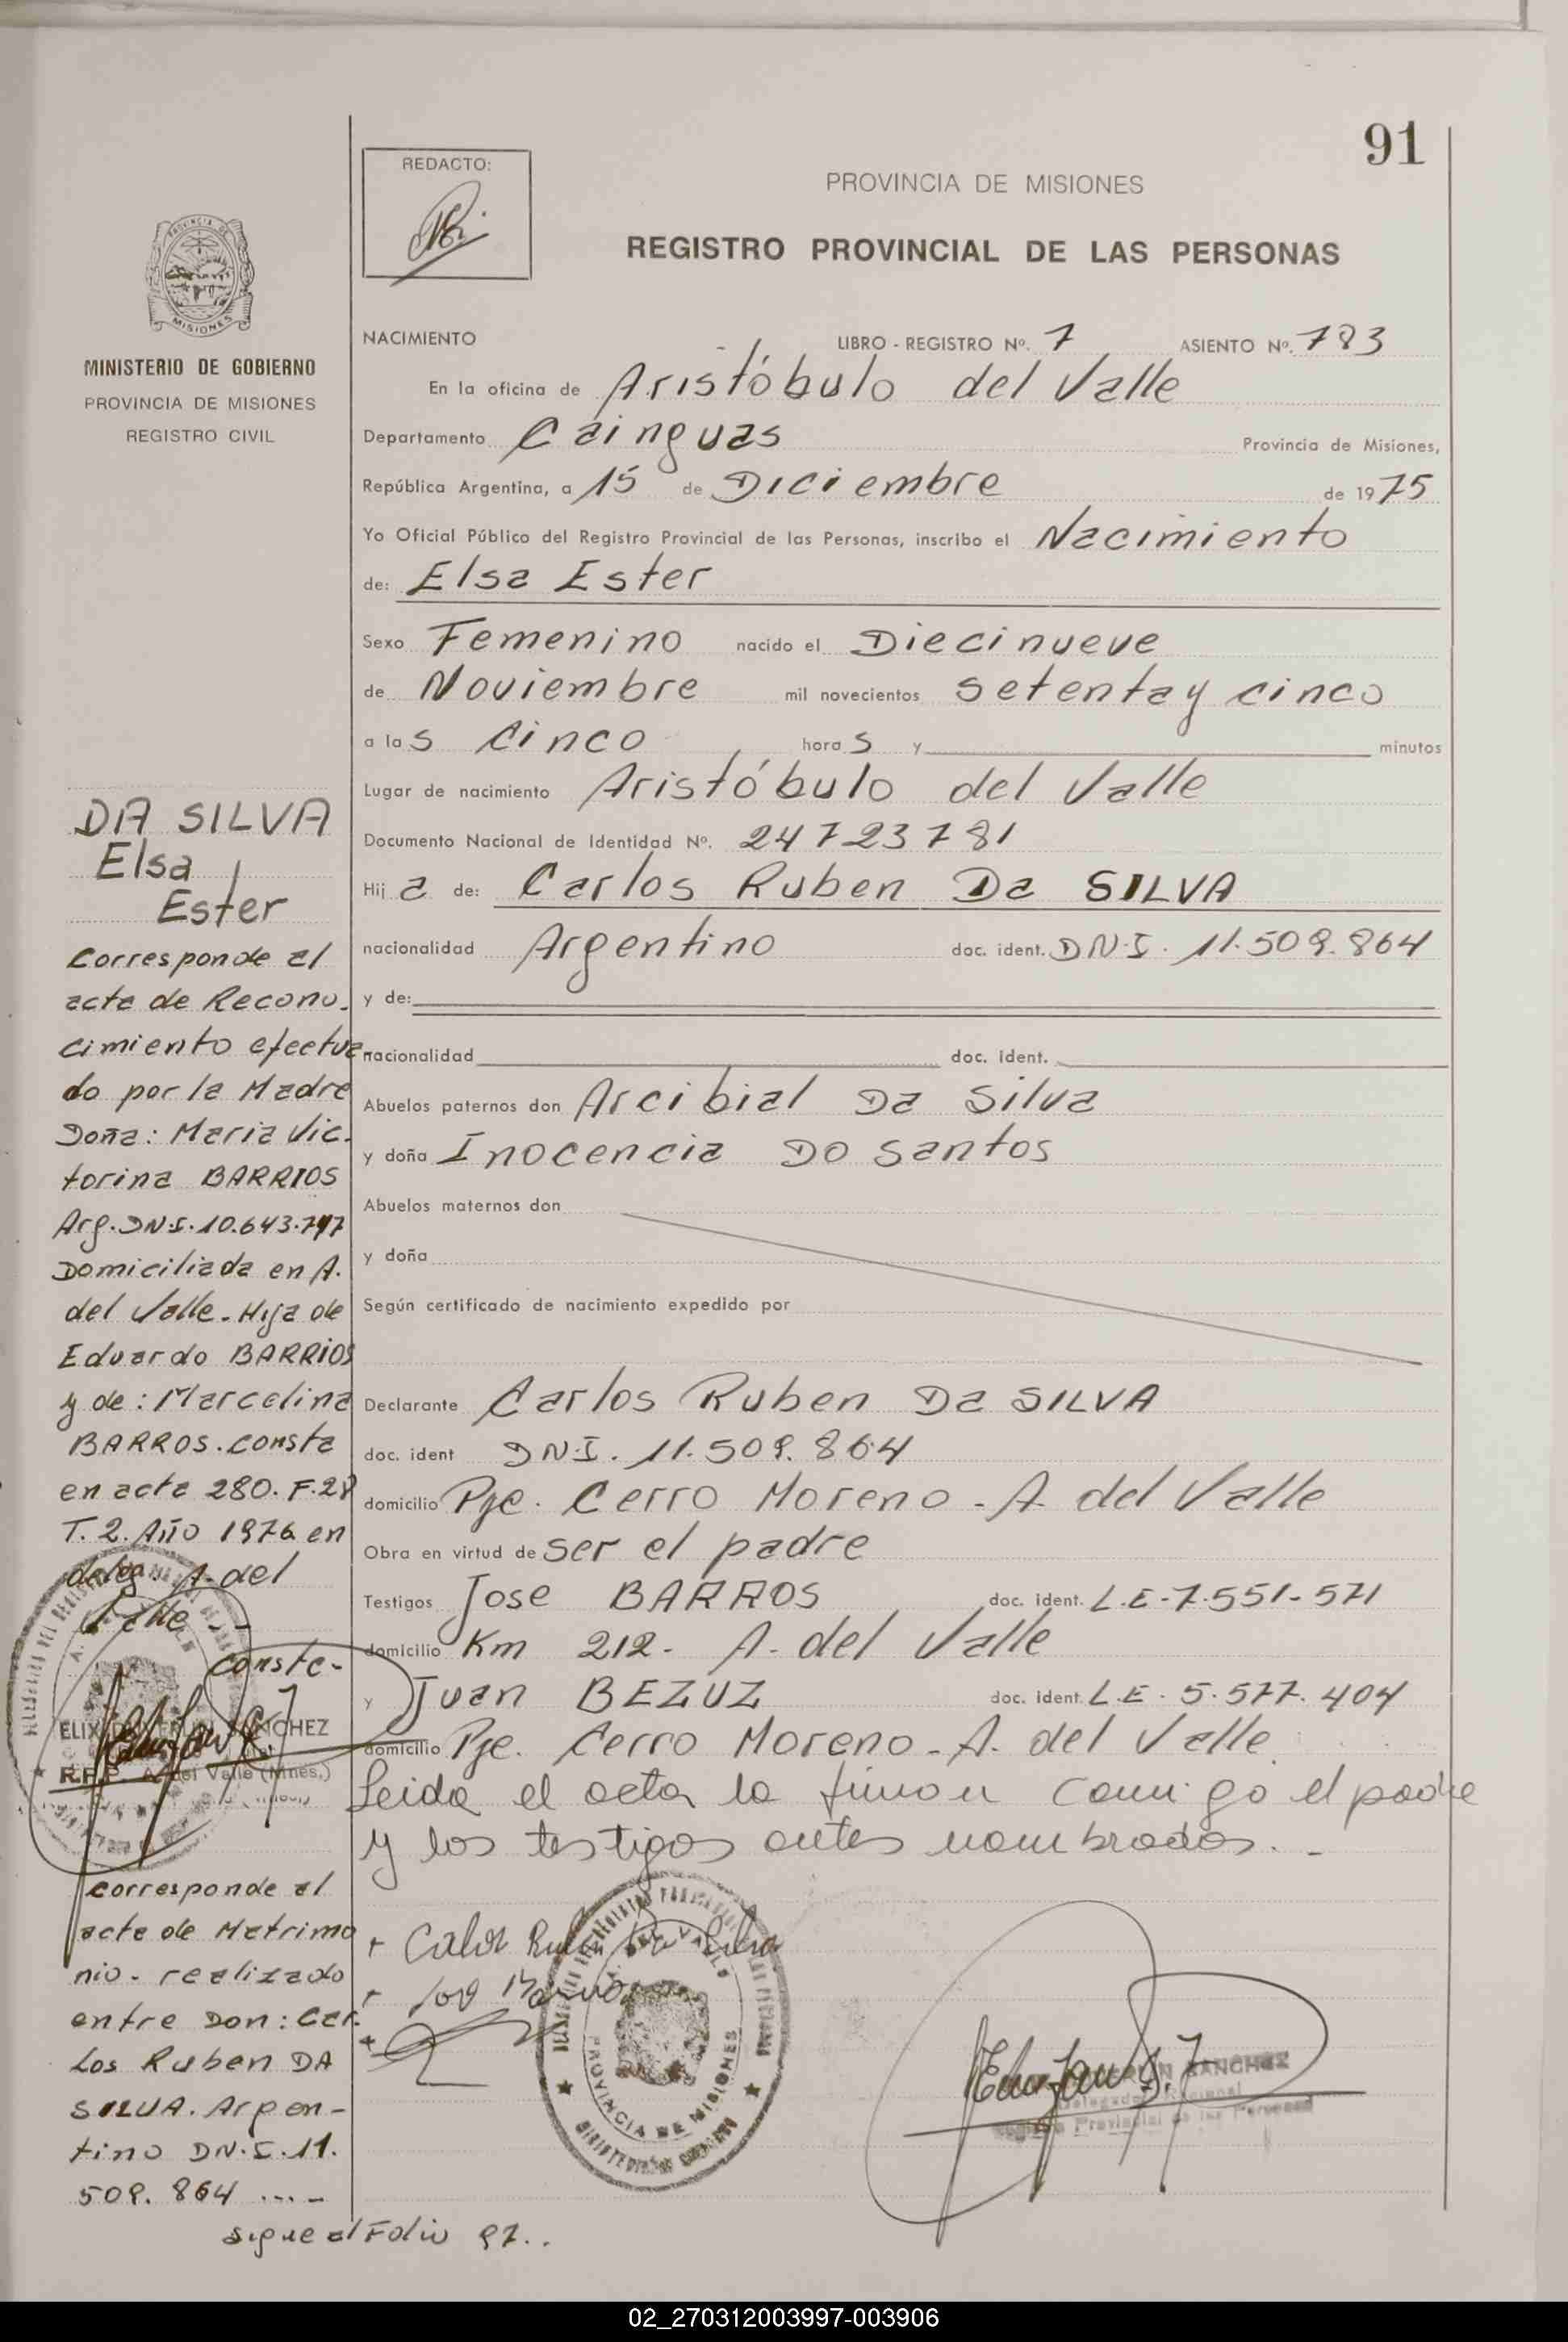 91
REDACTO:
PROVINCIA DE MISIONES
REGISTRO PROVINCIAL DE LAS PERSONAS
PROVINCIA DE
MISIONES
MINISTERIO DE GOBIERNO
PROVINCIA DE MISIONES
REGISTRO CIVIL
NACIMIENTO LIBRO - REGISTRO Nº. 7 ASIENTO Nº. 783
En la oficina de Aristóbulo del Valle
Departamento Cainguas Provincia de Misiones,
República Argentina, a 15 de Diciembre de 1975
Yo Oficial Público del Registro Provincial de las Personas, inscribo el Nacimiento
de: Elsa Ester
Sexo Femenino nacido el Diecinueve
de Noviembre mil novecientos setenta y cinco
a las cinco horas y minutos
Lugar de nacimiento Aristóbulo del Valle
Documento Nacional de Identidad Nº. 24723781
Hija de: Carlos Ruben Da SILVA
nacionalidad Argentino doc. ident. D.N.I. 11.509.864
y de:
nacionalidad doc. ident.
Abuelos paternos don Arcibial Da Silva
y doña Inocencia Do Santos
Abuelos maternos don
y doña
Según certificado de nacimiento expedido por
Declarante Carlos Ruben Da SILVA
doc. ident D.N.I. 11.509.864
domicilio Pje. Cerro Moreno - A. del Valle
Obra en virtud de ser el padre
Testigos Jose BARROS doc. ident. L.E-7.551-571
domicilio Km 212- A. del Valle
y Juan BEZUZ doc. ident. L.E. 5.577.404
domicilio Pje. Cerro Moreno - A. del Valle
Leida el acta la firman conmigo el padre
y los testigos antes nombrados. -
DA SILVA
Elsa
Ester
Corresponde al
acta de Recono-
cimiento efectua
do por la Madre
Doña: Maria Vic-
torina BARRIOS
Arg. D.N.I. 10.643.
Domiciliada en A.
del Valle - Hija de
Eduardo BARRIOS
y de: Marcelina
BARROS. consta
en acta 280. F.
T. 2. Año 1976 en
deleg. A. del
Valle. -
Conste-
SANCHEZ
R.P.P. A. del Valle (Mnes.)
Corresponde al
acta de Matrimo
nio - realizado
entre Don: Car-
los Ruben DA
SILVA. Argen-
tino D.N.I. 11.
509. 864 ... -
sigue al Folio 97..
PROVINCIA DE MISIONES
MINISTERIO DE GOBIERNO
SANCHEZ
02_270312003997-003906